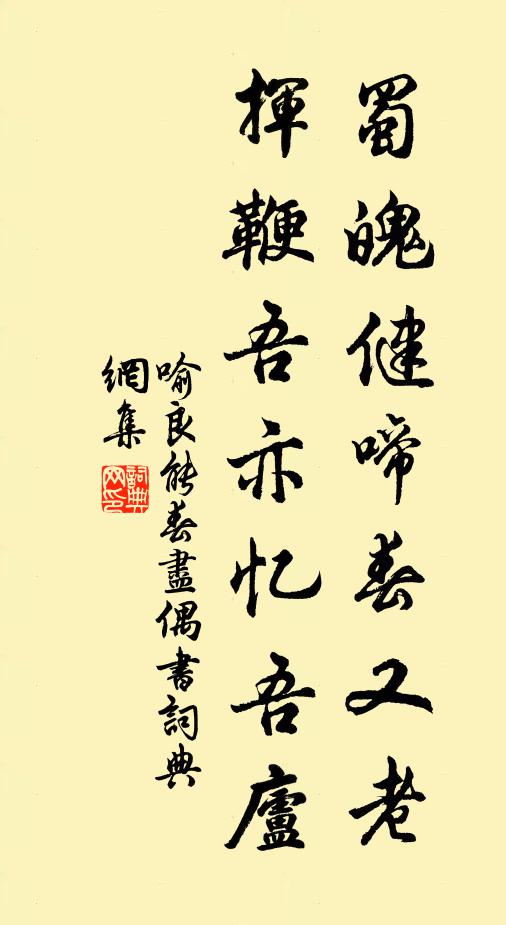 蜀魄健啼春又老
揮鞭吾亦忆吾廬
喻良能春盡偶書詞典
網集
詞典
网印